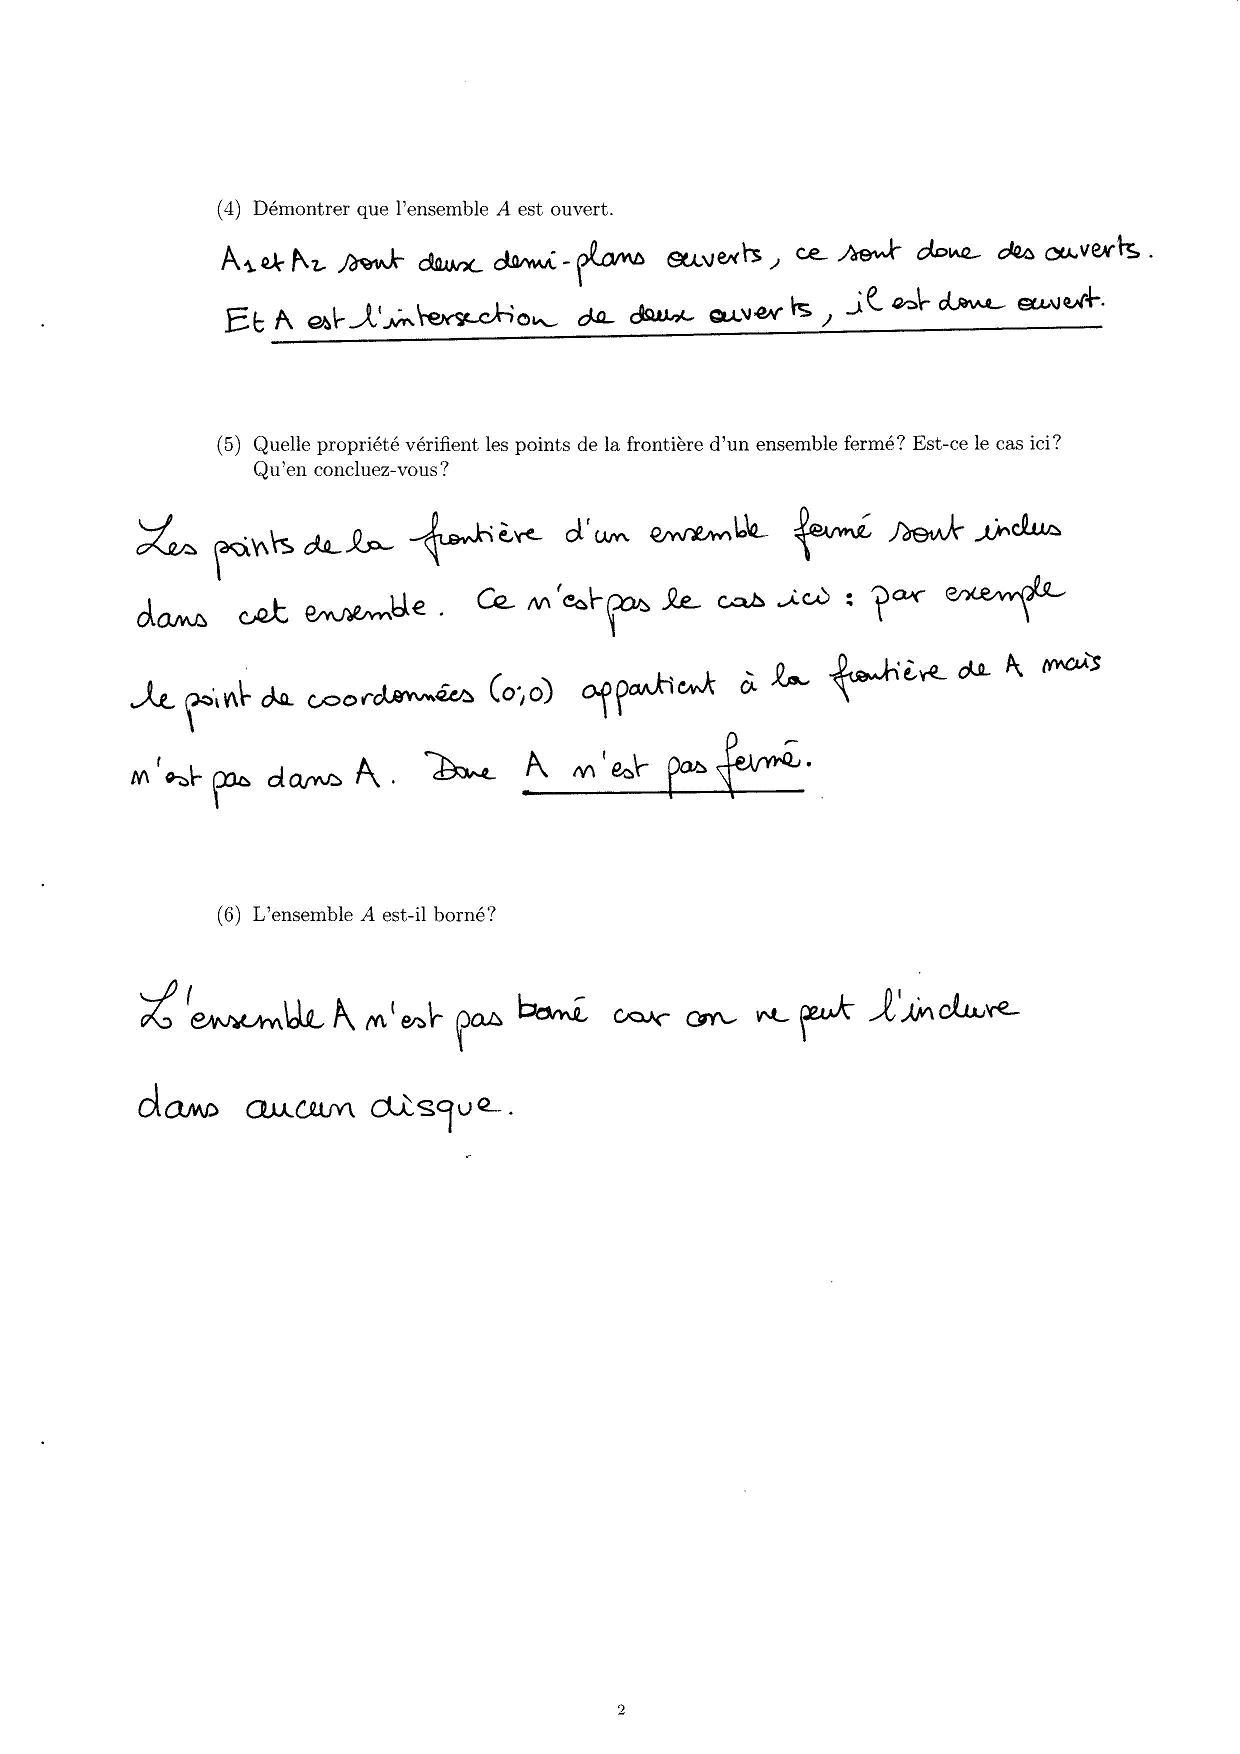 (4) Démontrer que l'ensemble A est ouvert.
A1 et A2 sont deux demi-plans ouverts, ce sont donc des ouverts.
Et A est l'intersection de deux ouverts, il est donc ouvert.
(5) Quelle propriété vérifient les points de la frontière d'un ensemble fermé? Est-ce le cas ici?
Qu'en concluez-vous?
Les points de la frontière d'un ensemble fermé sont inclus
dans cet ensemble. Ce n'est pas le cas ici : par exemple
le point de coordonnées (0;0) appartient à la frontière de A mais
n'est pas dans A. Donc A n'est pas fermé.
(6) L'ensemble A est-il borné?
L'ensemble A n'est pas borné car on ne peut l'inclure
dans aucun disque.
2